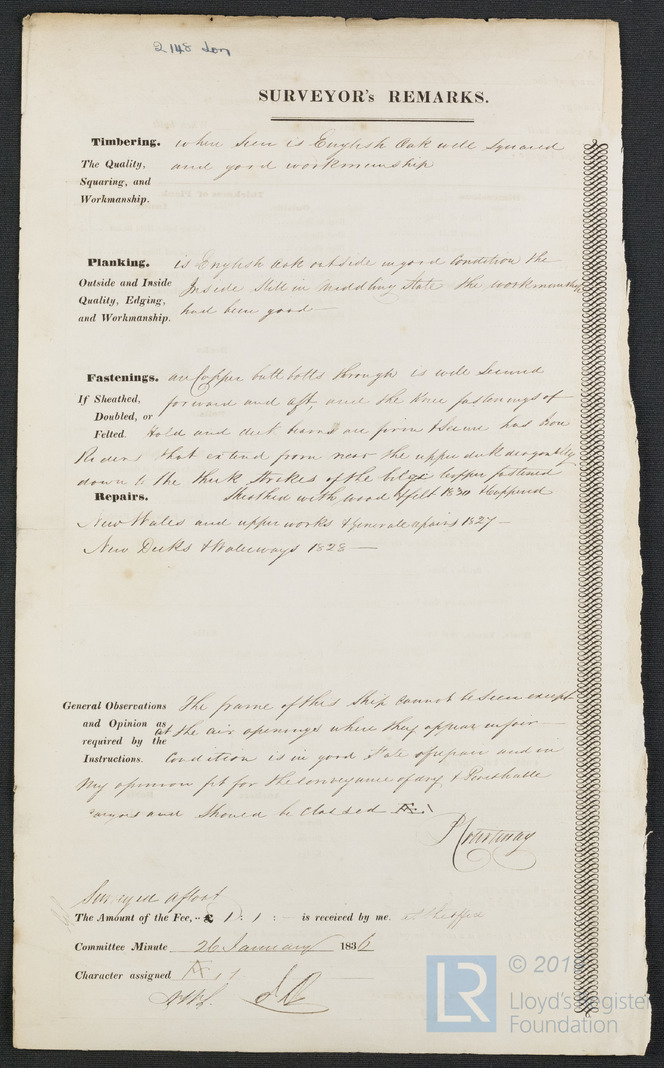 2148 Lon
SURVEYOR's REMARKS.
Timbering. where seen is English Oak well squared
The Quality, and good workmanship
Squaring, and
Workmanship.
Planking. is English oak outside in good Condition the
Outside and Inside Inside still in middling State the workmanship
Quality, Edging, had been good
and Workmanship.
Fastenings. all Copper butt bolts through is well Secured
If Sheathed, forward and aft, and the Knee fastenings of
Doubled, or
Felted. Hold and deck beams are firm & secure has Iron
Riders that extend from near the upper deck diagonally
down to the thick Strokes of the bilge Copper fastened
Repairs. Sheathed with wood & felt 1830 & Coppered
New Wales and upper works & General Repairs 1827
New Decks & Waterways 1828
General Observations The frame of this Ship cannot be seen except
and Opinion as at the air openings where they appear in fair
required by the
Instructions. Condition is in good State of repair and in
my opinion fit for the conveyance of dry & Perishable
Cargoes and Should be Classed Æ. 1
Courtenay
Surveyed afloat
The Amount of the Fee, .. £ 1 : 1 : — is received by me. at the office
Committee Minute 26 January 183
Character assigned Æ. 1
LR
© 201
Lloyd's Register
Foundation